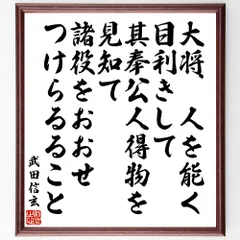 大将　人を能く
目利きして
其奉公人得物を
見知て
諸役をおおせ
つけらるること
武田信玄